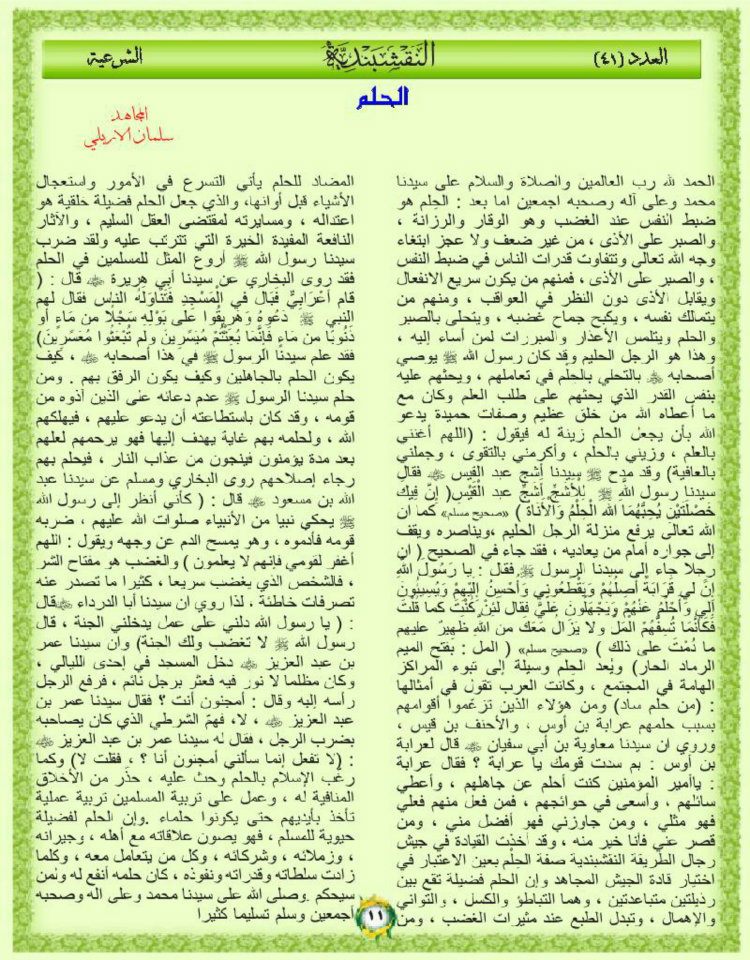 العدد (٤١)
النقشبندية
الشرعية
الحلم
المجاهد
سلمان الاربلي
الحمد لله رب العالمين والصلاة والسلام على سيدنا
محمد وعلى آله وصحبه اجمعين اما بعد : الحِلم هو
ضبط النفس عند الغضب وهو الوقار والرزانة ،
والصبر على الأذى ، من غير ضعف ولا عجز ابتغاء
وجه الله تعالى وتتفاوت قدرات الناس في ضبط النفس
، والصبر على الأذى ، فمنهم من يكون سريع الانفعال
ويقابل الأذى دون النظر في العواقب ، ومنهم من
يتمالك نفسه ، ويكبح جماح غضبه ، ويتحلى بالصبر
والحلم ويتلمس الأعذار والمبررات لمن أساء إليه ،
وهذا هو الرجل الحليم وقد كان رسول الله ﷺ يوصي
أصحابه ﷺ بالتحلي بالحلم في تعاملهم ، ويحثهم عليه
بنفس القدر الذي يحثهم على طلب العلم وكان مع
ما أعطاه الله من خلق عظيم وصفات حميدة يدعو
الله بأن يجعل الحلم زينة له فيقول : (اللهم أغنني
بالعلم ، وزيني بالحلم ، وأكرمني بالتقوى ، وجملني
بالعافية) وقد مدح ﷺ سيدنا أشج عبد القيس فقال
سيدنا رسول الله ﷺ لِلْأَشَجِّ أَشَجِّ عبد الْقَيْسِ( إِنَّ فِيكَ
خَصْلَتَيْنِ يُحِبُّهُمَا اللَّه الْحِلْمُ وَالْأَنَاةُ ) «صحيح مسلم» كما ان
الله تعالى يرفع منزلة الرجل الحليم ،ويناصره ويقف
إلى جواره أمام من يعاديه ، فقد جاء في الصحيح ( ان
رجلا جاء إلى سيدنا الرسول ﷺ فقال : يا رَسُولَ اللَّهِ
إِنَّ لي قَرَابَةً أَصِلُهُمْ وَيَقْطَعُونِي وَأُحْسِنُ إِلَيْهِمْ وَيُسِيئُونَ
إِلَيَّ وَأَحْلُمُ عَنْهُمْ وَيَجْهَلُونَ عَلَيَّ فقال لَئِنْ كُنْتَ كما قُلْتَ
فَكَأَنَّمَا تُسِفُّهُمْ الْمَلَّ ولا يَزَالُ مَعَكَ من اللَّهِ ظَهِيرٌ عليهم
ما دُمْتَ على ذلك ) «صحيح مسلم» ( المل : بفتح الميم
الرماد الحار) ويُعد الحلم وسيلة إلى تبوء المراكز
الهامة في المجتمع ، وكانت العرب تقول في أمثالها
: (من حلم ساد) ومن هؤلاء الذين تزعموا أقوامهم
بسبب حلمهم عرابة بن أوس ، والأحنف بن قيس ،
وروي ان سيدنا معاوية بن أبي سفيان قال لعرابة
بن أوس : بم سدت قومك يا عرابة ؟ فقال عرابة
: ياأمير المؤمنين كنت أحلم عن جاهلهم ، وأعطي
سائلهم ، وأسعى في حوائجهم ، فمن فعل منهم فعلي
فهو مثلي ، ومن جاوزني فهو أفضل مني ، ومن
قصر عني فأنا خير منه ، وقد أخذت القيادة في جيش
رجال الطريقة النقشبندية صفة الحلم بعين الاعتبار في
اختيار قادة الجيش المجاهد وإن الحلم فضيلة تقع بين
رذيلتين متباعدتين ، وهما التباطؤ والكسل ، والتواني
والإهمال ، وتبدل الطبع عند مثيرات الغضب ، ومن
المضاد للحلم يأتي التسرع في الأمور واستعجال
الأشياء قبل أوانها، والذي جعل الحلم فضيلة خلقية هو
اعتداله ، ومسايرته لمقتضى العقل السليم ، والآثار
النافعة المفيدة الخيرة التي تترتب عليه ولقد ضرب
سيدنا رسول الله ﷺ أروع المثل للمسلمين في الحلم
فقد روى البخاري عن سيدنا أبي هريرة قال : (
قام أَعْرَابِيٌّ فَبَالَ في الْمَسْجِدِ فَتَنَاوَلَهُ الناس فقال لهم
النبي ﷺ دَعُوهُ وَهَرِيقُوا على بَوْلِهِ سَجْلًا من مَاءٍ أو
ذَنُوبًا من مَاءٍ فَإِنَّمَا بُعِثْتُمْ مُيَسِّرِينَ ولم تُبْعَثُوا مُعَسِّرِينَ)
فقد علم سيدنا الرسول ﷺ في هذا أصحابه ، كيف
يكون الحلم بالجاهلين وكيف يكون الرفق بهم . ومن
حلم سيدنا الرسول ﷺ عدم دعائه على الذين آذوه من
قومه ، وقد كان باستطاعته أن يدعو عليهم ، فيهلكهم
الله ، ولحلمه بهم غاية يهدف إليها فهو يرحمهم لعلهم
بعد مدة يؤمنون فينجون من عذاب النار ، فيحلم بهم
رجاء إصلاحهم روى البخاري ومسلم عن سيدنا عبد
الله بن مسعود قال : ( كأني أنظر إلى رسول الله
ﷺ يحكي نبيا من الأنبياء صلوات الله عليهم ، ضربه
قومه فأدموه ، وهو يمسح الدم عن وجهه ويقول : اللهم
أغفر لقومي فإنهم لا يعلمون ) والغضب هو مفتاح الشر
، فالشخص الذي يغضب سريعا ، كثيرا ما تصدر عنه
تصرفات خاطئة ، لذا روي ان سيدنا أبا الدرداء قال
: ( يا رسول الله دلني على عمل يدخلني الجنة ، قال
رسول الله ﷺ لا تغضب ولك الجنة) وان سيدنا عمر
بن عبد العزيز دخل المسجد في إحدى الليالي ،
وكان مظلما لا نور فيه فعثر برجل نائم ، فرفع الرجل
رأسه إليه وقال : أمجنون أنت ؟ فقال سيدنا عمر بن
عبد العزيز ، لا، فهمّ الشرطي الذي كان يصاحبه
بضرب الرجل ، فقال له سيدنا عمر بن عبد العزيز
: (لا تفعل إنما سألني أمجنون أنا ؟ ، فقلت لا) وكما
رغب الإسلام بالحلم وحث عليه ، حذر من الأخلاق
المنافية له ، وعمل على تربية المسلمين تربية عملية
تأخذ بأيديهم حتى يكونوا حلماء .وإن الحلم لفضيلة
حيوية للمسلم ، فهو يصون علاقاته مع أهله ، وجيرانه
، وزملائه ، وشركائه ، وكل من يتعامل معه ، وكلما
زادت سلطاته وقدراته ونفوذه ، كان حلمه أنفع له ولمن
سيحكم .وصلى الله على سيدنا محمد وعلى اله وصحبه
أجمعين وسلم تسليما كثيرا
١١